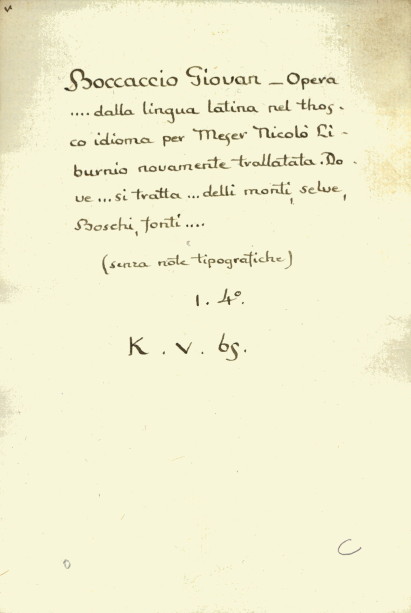 Boccaccio Giovan – Opera
.... dalla lingua latina nel thos-
co idioma per Meser Nicolò Li-
burnio novamente trallatata. Do-
ve ... si tratta ... delli monti, selve,
Boschi, fonti ....
(senza note tipografiche)
1. 4º.
K. V. 65.
C
0